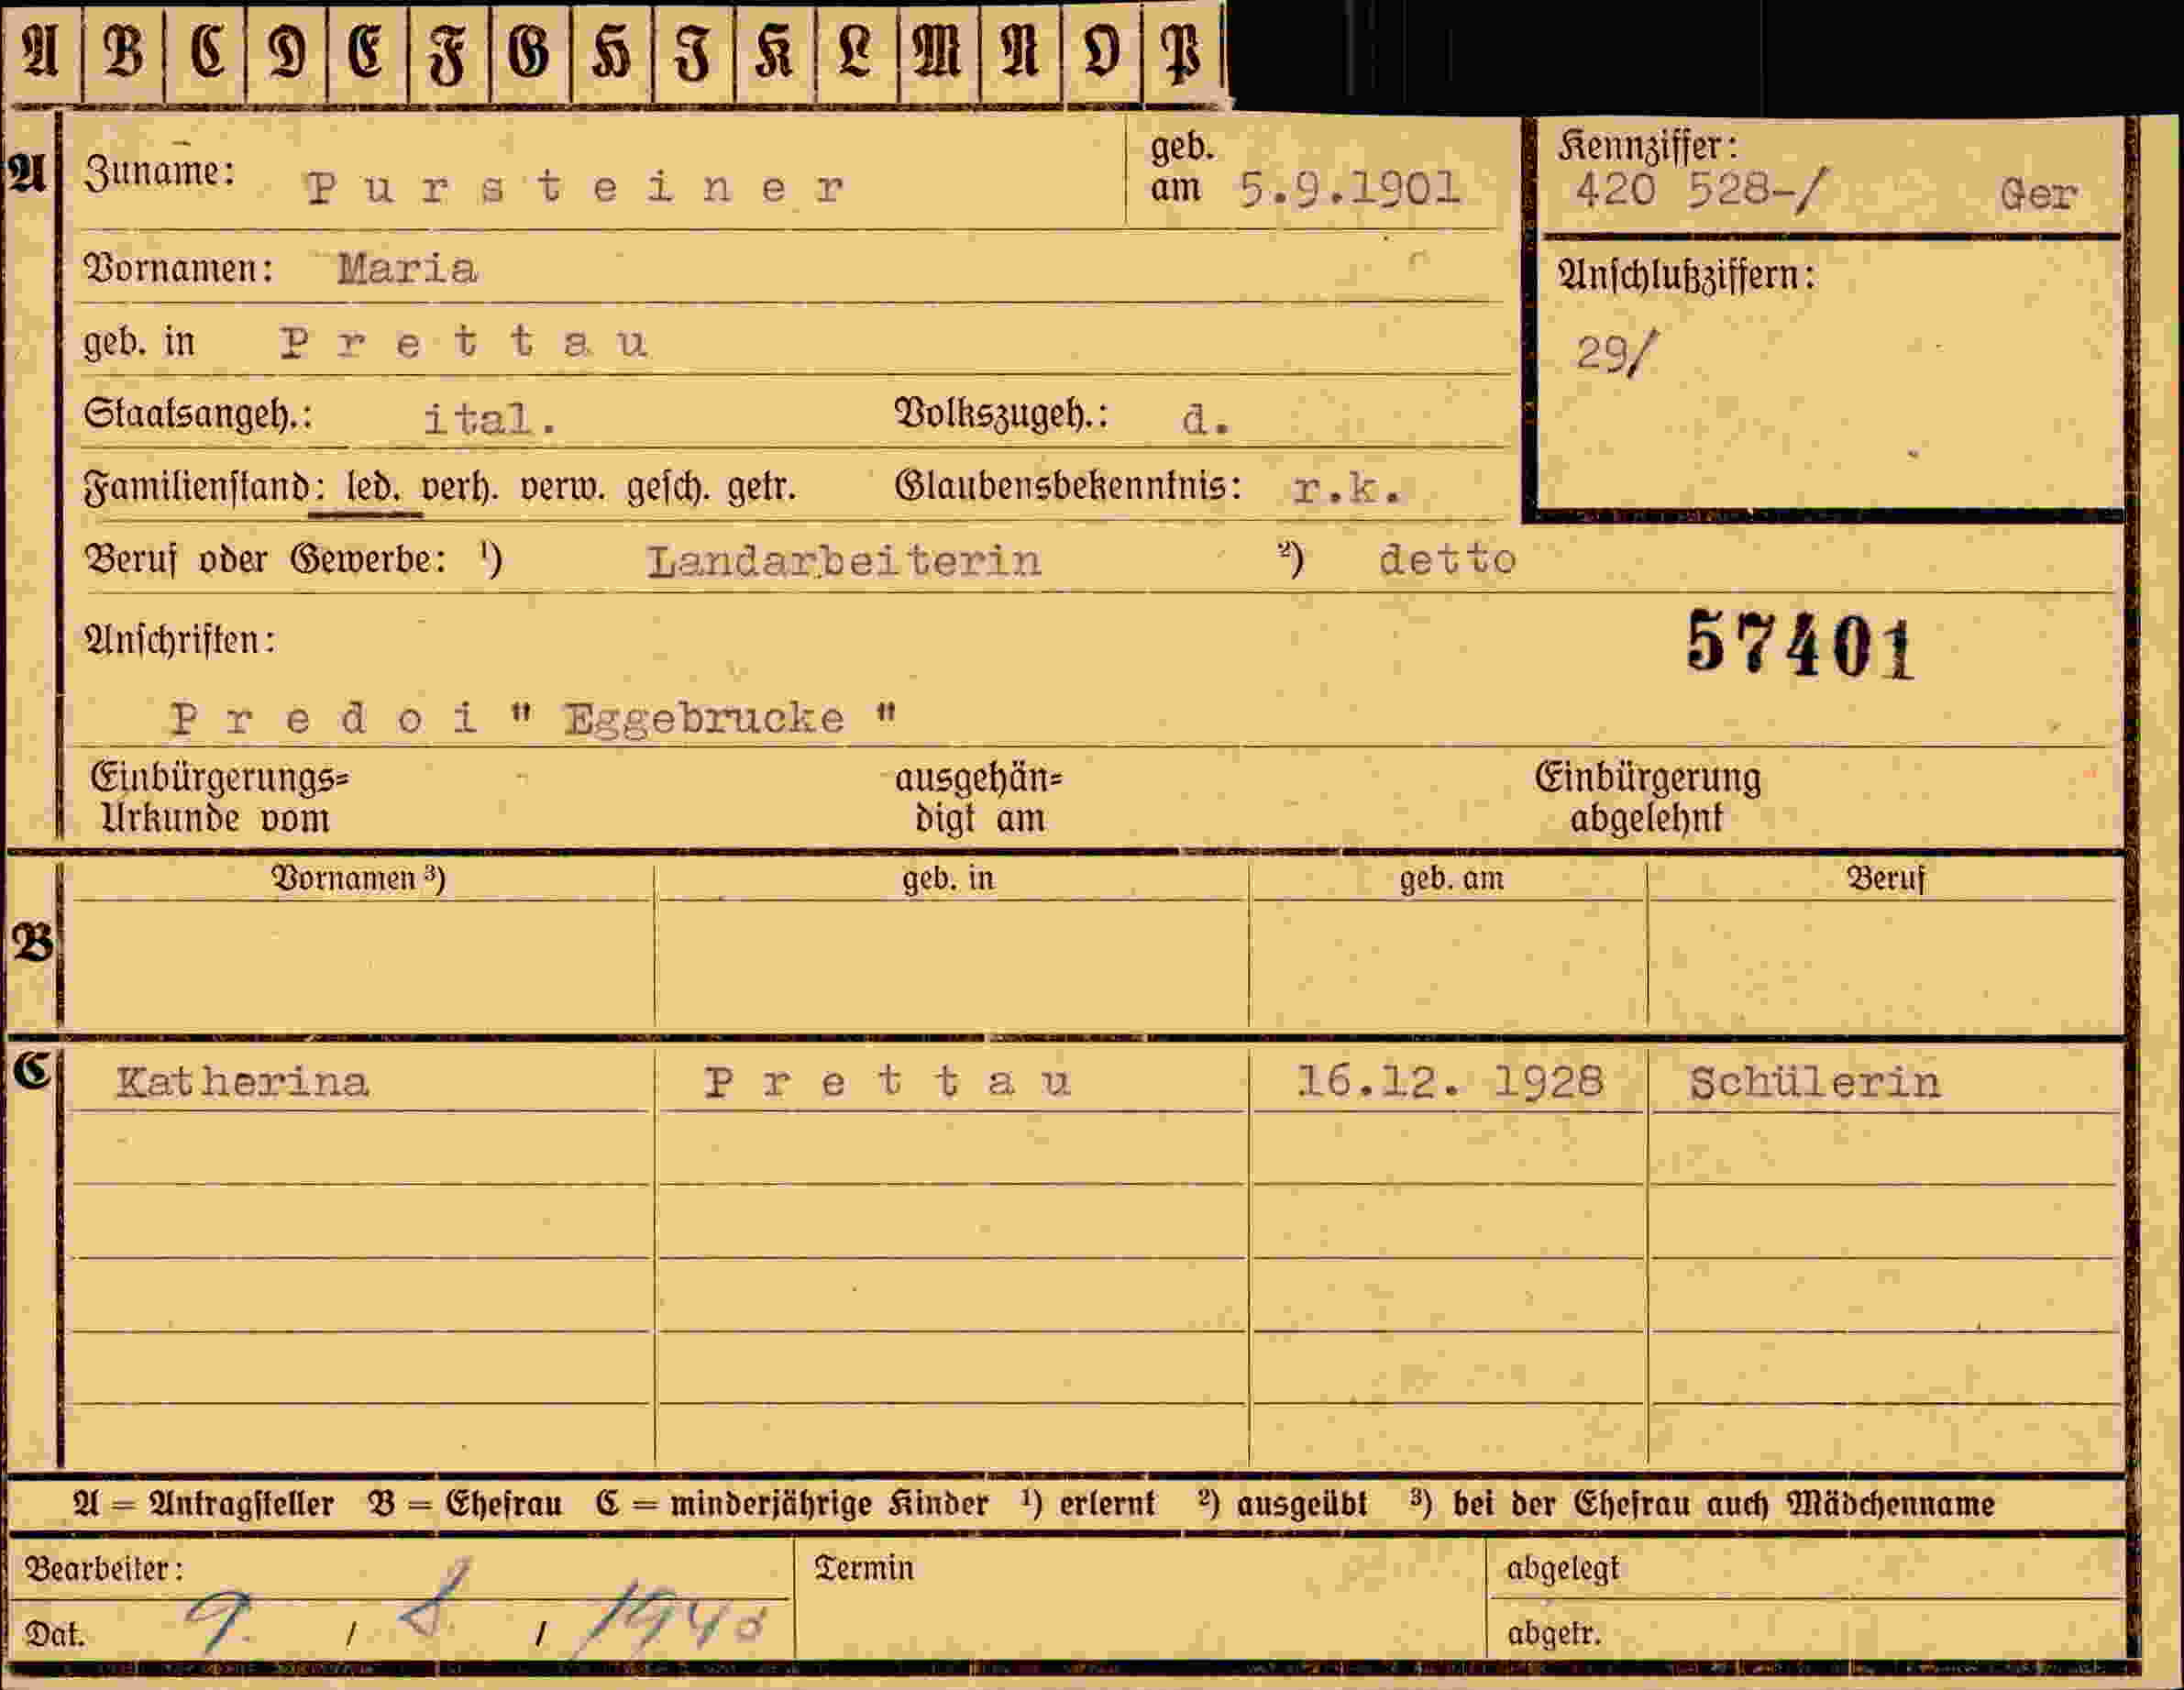 A B C D E F G H I K L M N O P
A Zuname: Pursteiner geb. am 5.9.1901
Kennziffer: 420 528-/ Ger
Vornamen: Maria
Anschlußziffern:
geb. in Prettau
29/
Staatsangeh.: ital. Volkszugeh.: d.
Familienstand: led. verh. verw. gesch. getr. Glaubensbekenntnis: r.k.
Beruf oder Gewerbe: ¹) Landarbeiterin ²) detto
Anschriften: 57401
Predoi " Eggebrucke "
Einbürgerungs= ausgehän= Einbürgerung
Urkunde vom digt am abgelehnt
Vornamen ³) geb. in geb. am Beruf
B
C Katherina Prettau 16.12. 1928 Schülerin
A = Antragsteller B = Ehefrau C = minderjährige Kinder ¹) erlernt ²) ausgeübt ³) bei der Ehefrau auch Mädchenname
Bearbeiter: Termin abgelegt
Dat. 9. / 8. / 1940 abgetr.